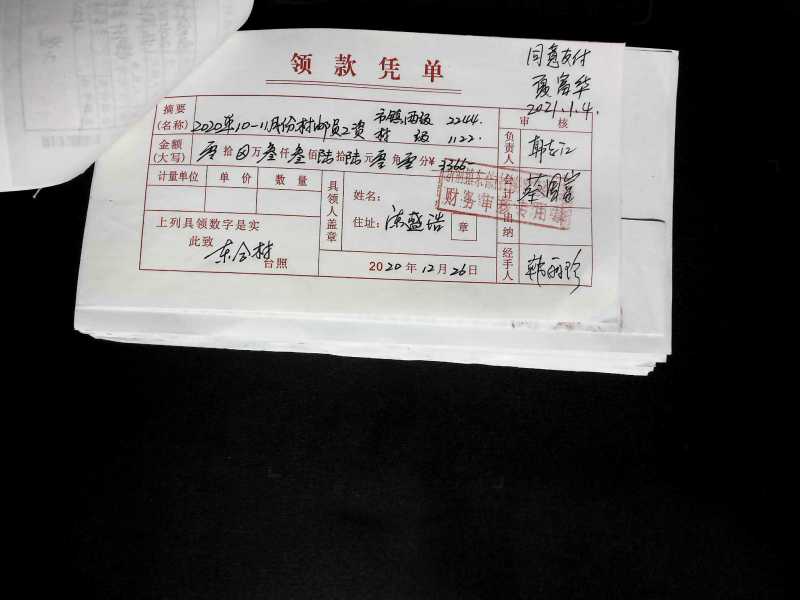 领款凭单
同意支付
夏富华
2021.1.4.
摘要(名称) 2020年10-11月份村邮员工资 市镇两级 2244.
村 级 1122.
审核
金额(大写) 零拾 万叁仟叁佰陆拾陆元零角零分¥ 3366
负责人
计量单位 单价 数量
具领人盖章
姓名:
住址: 章
会计
财务审核专用章
出纳
上列具领数字是实
此致
台照
2020年12月26日
经手人 韩丽珍